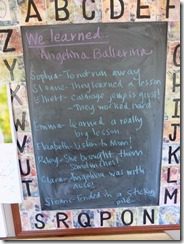 A B C D E F
We learned
Angelina Ballerina
Sophia - Don't run away
Sloane - They learned a lesson
Elliett - Cabbage jumps good!
- They worked hard
Emma - learned a really
big lesson.
Elizabeth - Listen to Mom!
Riley - She bought them
sandwiches!
Clara - Angelina was with
mice!
Sloane - Ended in a sticky
pile
S R Q P O N